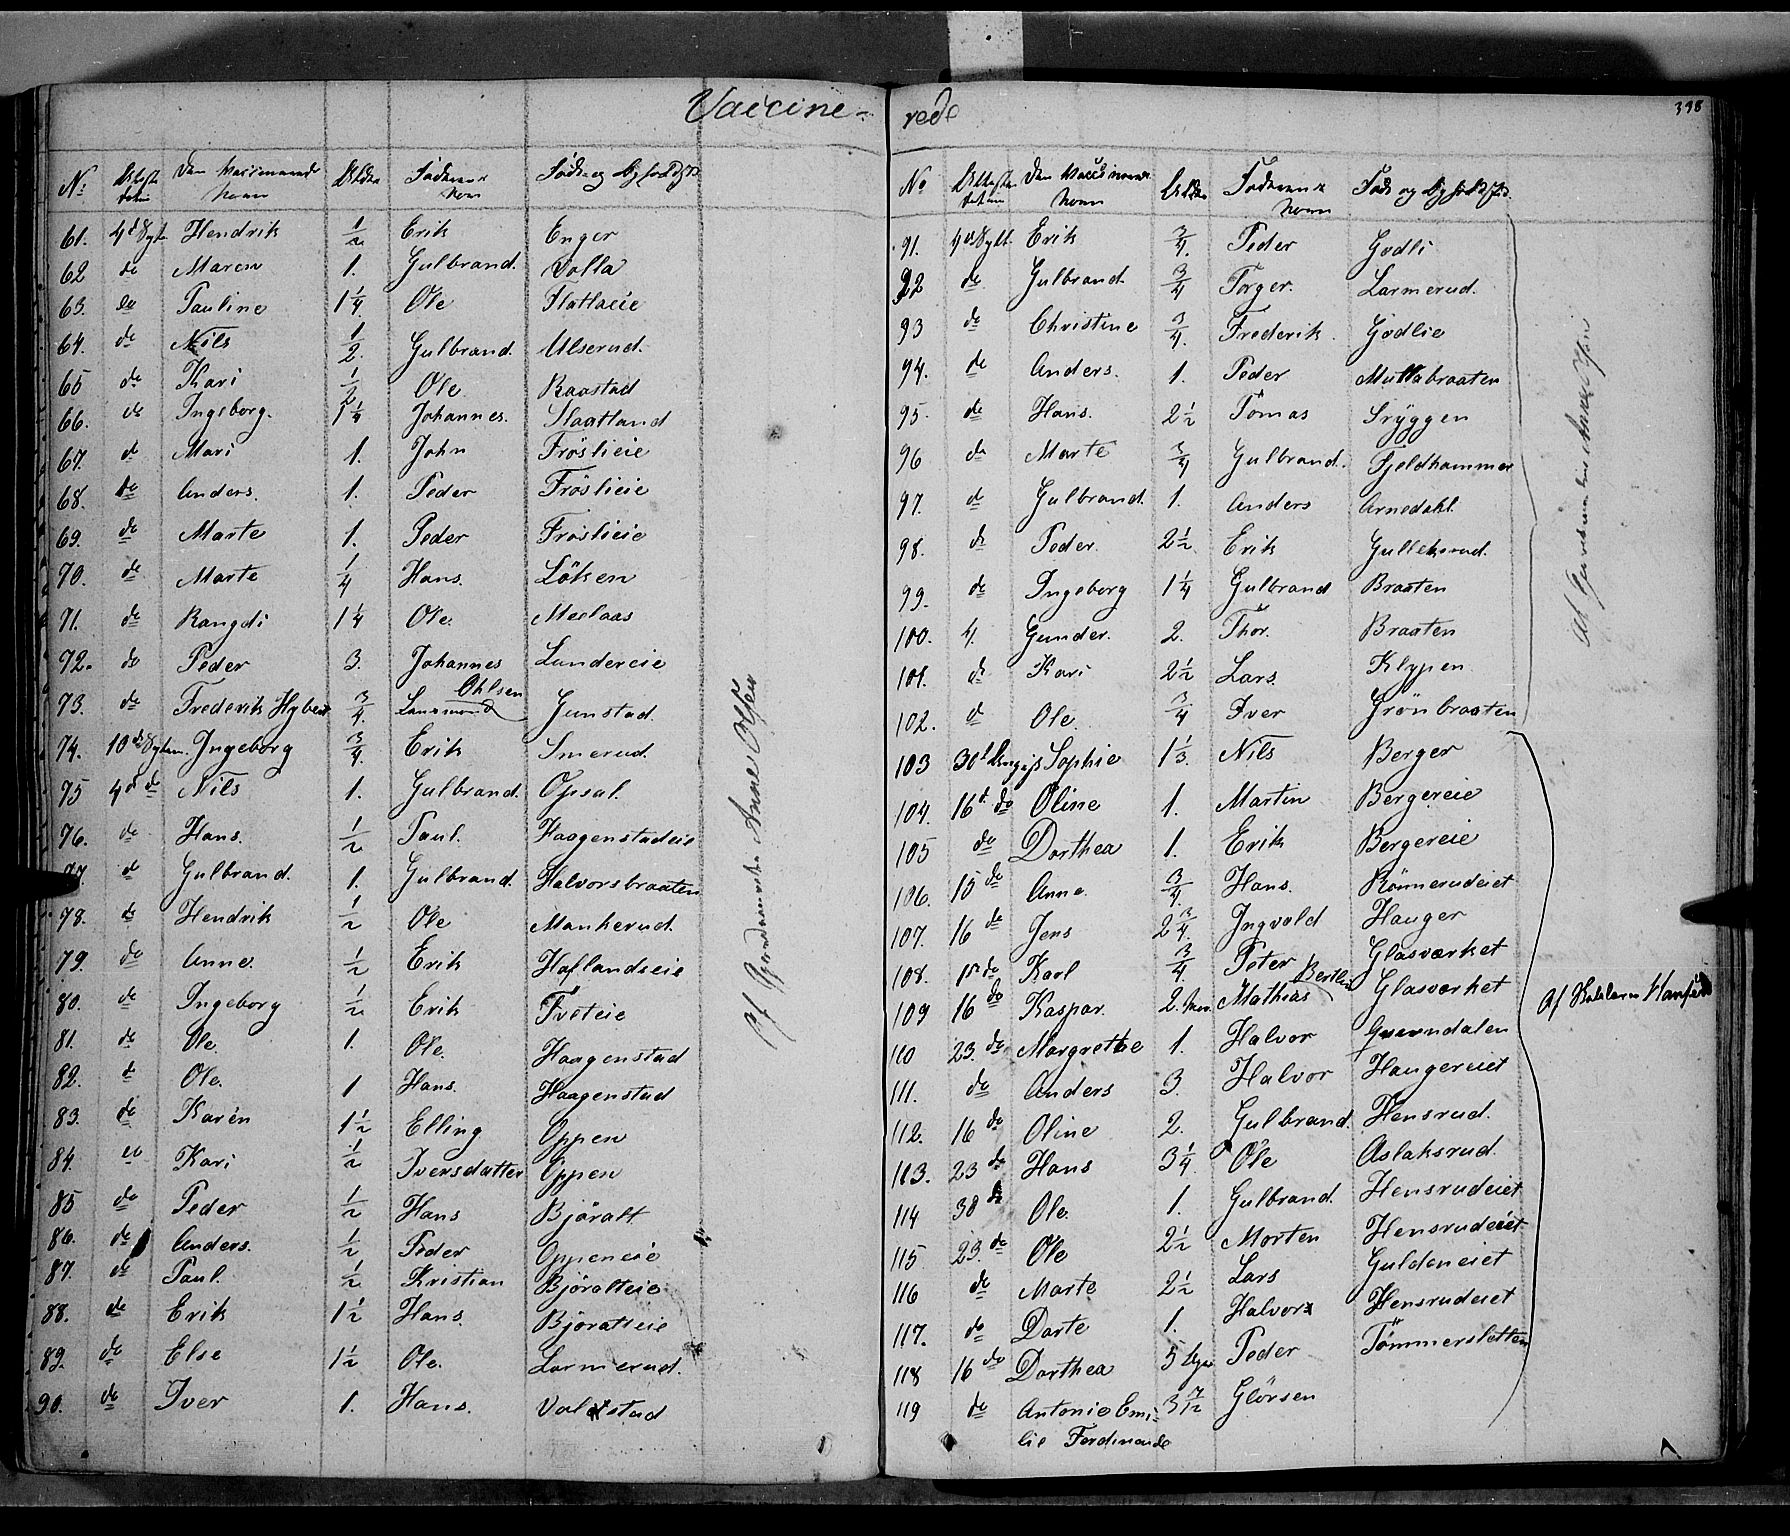 Vaccine-
No Attest datum Den Vaccineredes Navn Alder Faderens Navn Føde og Opholdssted
61. 4de Sept. Hendrik 1/2 Erik Enger
62 do Maren 1. Gulbrand. Volla
63. do Pauline 1 1/4 Ole Flatlaeie
64. do Nils 1/2. Gulbrand. Ulserud.
65 do Kari 1/2 Ole Raastad
66. do Ingeborg. 1 1/4 Johannes. Slaatland
67. do Mari 1. John Fröslieie
68. do Anders. 1. Peder Fröslieie
69. do Marte 1. Peder Fröslieie
70. do Marte 1/4 Hans. Löken
71. do Rangdi 1 1/4 Ole. Meelaas
72. do Peder 3. Johannes Landereie
73. do Frederik Hybert 3/4. Lensmand Ohlsen Gunstad.
74. 10de Septem. Ingeborg 3/4. Erik Smerud.
75 4de do Nils 1. Gulbrand. Opsal.
76. do Hans. 1/2 Paul. Haagenstadeie
77. do Gulbrand. 1. Gulbrand. Halvorsbraaten
78. do Hendrik 1/2 Ole Mankerud.
79. do Anne. 1/2 Erik Haflandseie
80. do Ingeborg 1/2 Erik Tveteie
81. do Ole. 1. Ole. Haagenstad
82. do Ole. 1 Hans. Haagenstad
83. do Karen 1 1/2 Elling Oppen
84. do Kari 1/2 Iversdatter Oppen
85 do Peder 1/2 Hans Björalt
86. do Anders. 1/2 Peder Oppeneie
87. do Paul. 1/2 Kristian Björalteie
88. do Erik 1 1/2 Hans. Björalteie
89. do Else 1 1/2 Ole. Larmerud.
90. do Iver 1. Hans. Valdstad
Af Gjordemoder Anne Olsen
rede
398
No Attest datum Den Vaccineredes Navn Alder Faderens Navn Føde og Opholdssted
91. 4de Sept. Erik 3/4. Peder Godli
92 do Gulbrand. 3/4 Torger. Larmerud.
93 do Christine 3/4. Frederik. Godlie
94. do Anders. 1. Peder Muttabraaten
95. do Hans. 2 1/2 Tomas Sryggen
96 do Marte 3/4 Gulbrand. Fjeldhammer
97. do Gulbrand. 1. Anders Arnedahl.
98. do Peder. 2 1/2. Erik Gulleksrud.
99. do Ingeborg 1 1/4 Gulbrand Braaten
100. 4. Gunder. 2. Thor. Braaten
101. do Kari 2 1/2 Lars. Klypen
102. do Ole. 3/4 Iver Grönbraaten
103 30te Sophie 1 1/3. Nils Berger
104. 16de do Oline 1. Martin Bergereie
105 do Dorthea 1. Erik Bergereie
106. 15 do Anne. 3/4. Hans. Rönnerudeiet
107. 16 do Jens 2 3/4. Ingvold Hauger
108. 15 do Karl 3/4. Peter Glasværket
109 16 do Kaspar. 2. Mathias Bertlin Glasværket
110 23. do Margrethe 1. Halvor Grœndalen
111. do Anders 3. Halvor Haugereiet
112. 16 do Oline 2. Gulbrand. Hensrud.
113. 23 do Hans 3 1/4. Ole Aslaksrud.
114 30 do Ole. 1. Gulbrand. Hensrudeiet
115. 23. do Ole 2 1/2 Morten Hensrudeiet
116 do Marte 2 1/2 Lars Guldeneiet
117. do Dorte 1. Halvor Hensrudeiet
118 16 do Dorthea 5 Uger Peder Tömmersletten
119 do Antonie Emi- 3 7/12 Glörsen
lie Ferdinande
Af Gjordemoder Anne Olsen